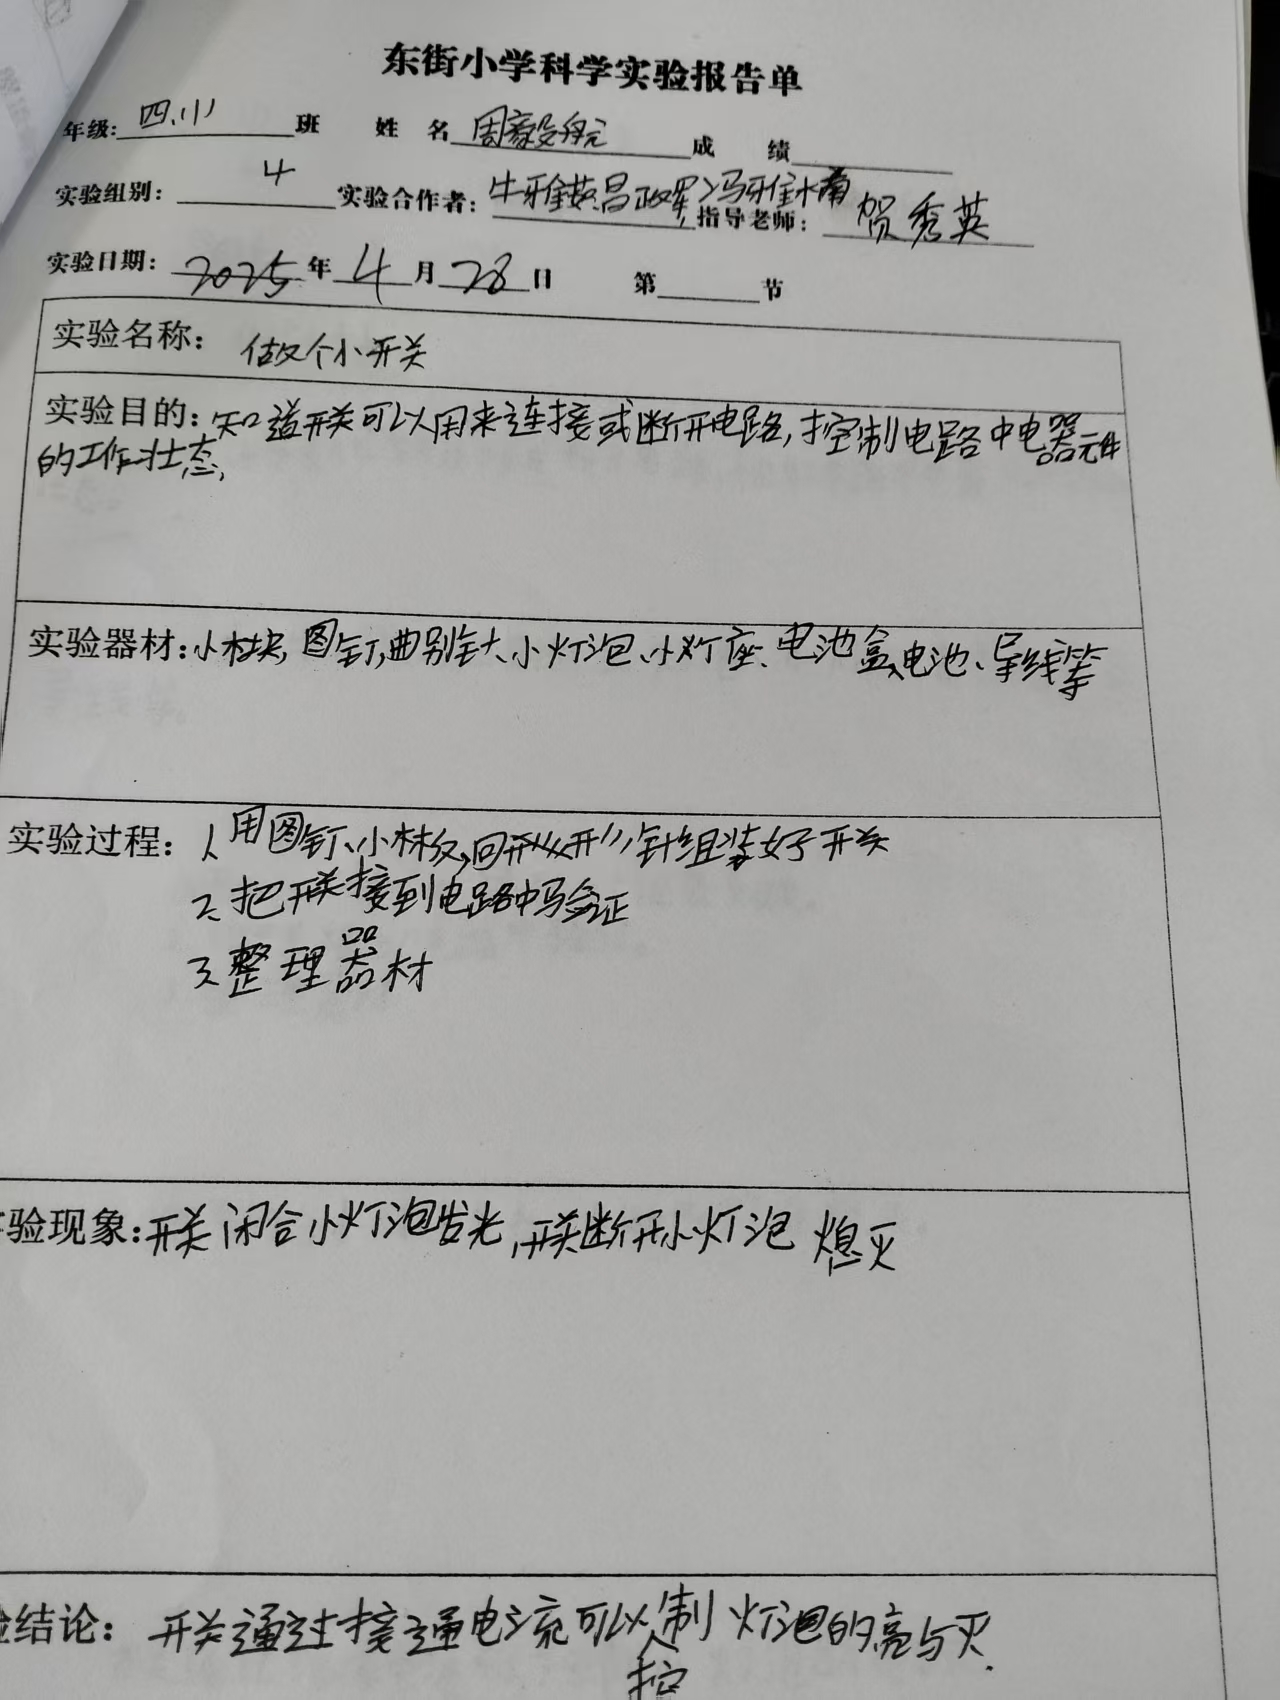 东街小学科学实验报告单
年级: 四、小 班 姓 名 周豪 成 绩
实验组别: 4 实验合作者: 牛雅 冯雅 指导老师: 贺秀英
实验日期: 2025 年 4 月 28 日 第 节
实验名称: 做个小开关
实验目的: 知道开关可以用来连接或断开电路,控制电路中电器元件
的工作状态,
实验器材: 小木块,图钉,曲别针、小灯泡、小灯座、电池盒、电池、导线等
实验过程: 1、用图钉、小木板,回形针组装好开关
2、把开关接到电路中验证
3、整理器材
验现象: 开关闭合小灯泡发光,开关断开小灯泡 熄灭
验结论: 开关通过接通电流可以控制 灯泡的亮与灭.